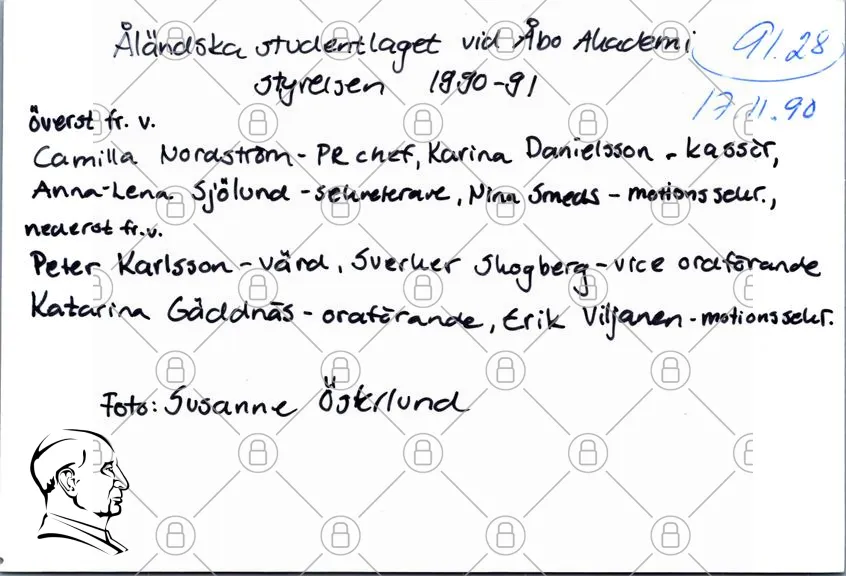 Åländska studentlaget vid Åbo Akademi
91.28
styrelsen 1990-91
17.11.90
överst fr. v.
Camilla Nordström - PR chef, Karina Danielsson - kassör,
Anna-Lena Sjölund - sekreterare, Nina Smeds - motionssekr.,
nederst fr.v.
Peter Karlsson - värd, Sverker Skogberg - vice ordförande
Katarina Gäddnäs - ordförande, Erik Viljanen - motionssekr.
Foto: Susanne Österlund